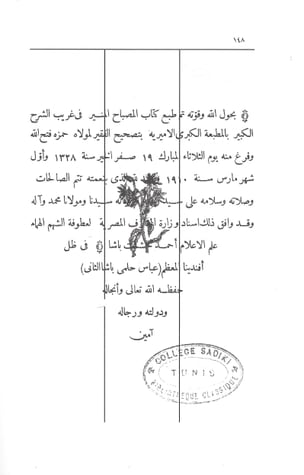 ١٤٨
بحول الله وقوته تم طبع كتاب المصباح المنير فى غريب الشرح
الكبير بالمطبعة الكبرى الاميريه بتصحيح الفقير لمولاه حمزه فتح الله
وفرغ منه يوم الثلاثاء المبارك ١٩ صفر الخير سنة ١٣٢٨ وأول
شهر مارس سنة ١٩١٠ بنعمته تتم الصالحات
وصلاته وسلامه على سيدنا ومولانا محمد وآله
وقد وافق ذلك اسناد وزارة المعارف المصرية لعطوفة الشهم الهمام
علم الاعلام أحمد حشمت باشا فى ظل
أفندينا المعظم (عباس حلمى باشا الثانى)
حفظه الله تعالى وأنجاله
ودولته ورجاله
آمين
COLLEGE SADIKI
TUNIS
BIBLIOTHEQUE CLASSIQUE